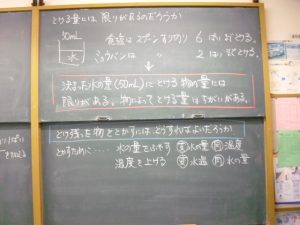 とける量には、限りがあるのだろうか
50mL
食塩はスプーンすり切り 6はいとける。
水
ミョウバンは 〃 2はいとける。
決まった水の量(50mL)にとける物の量には
限りがある。物によってとける量はちがいがある。
とけ残った物をとかすには、どうすればよいだろうか
とかすために‥‥ 水の量をふやす 変水の量 同温度
温度を上げる 変水温 同水の量